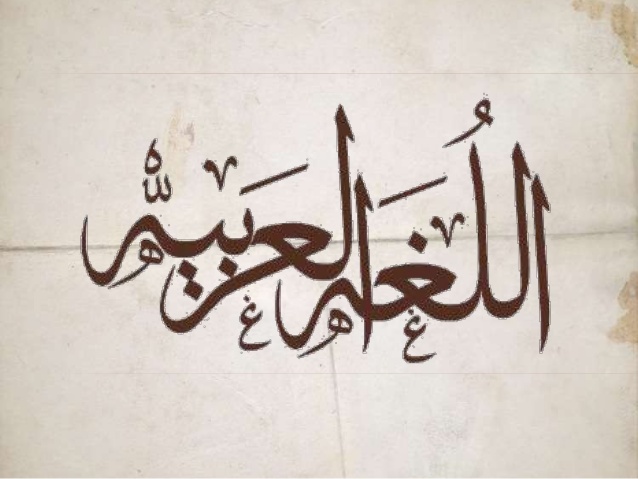 اللُغَه العَربيّه